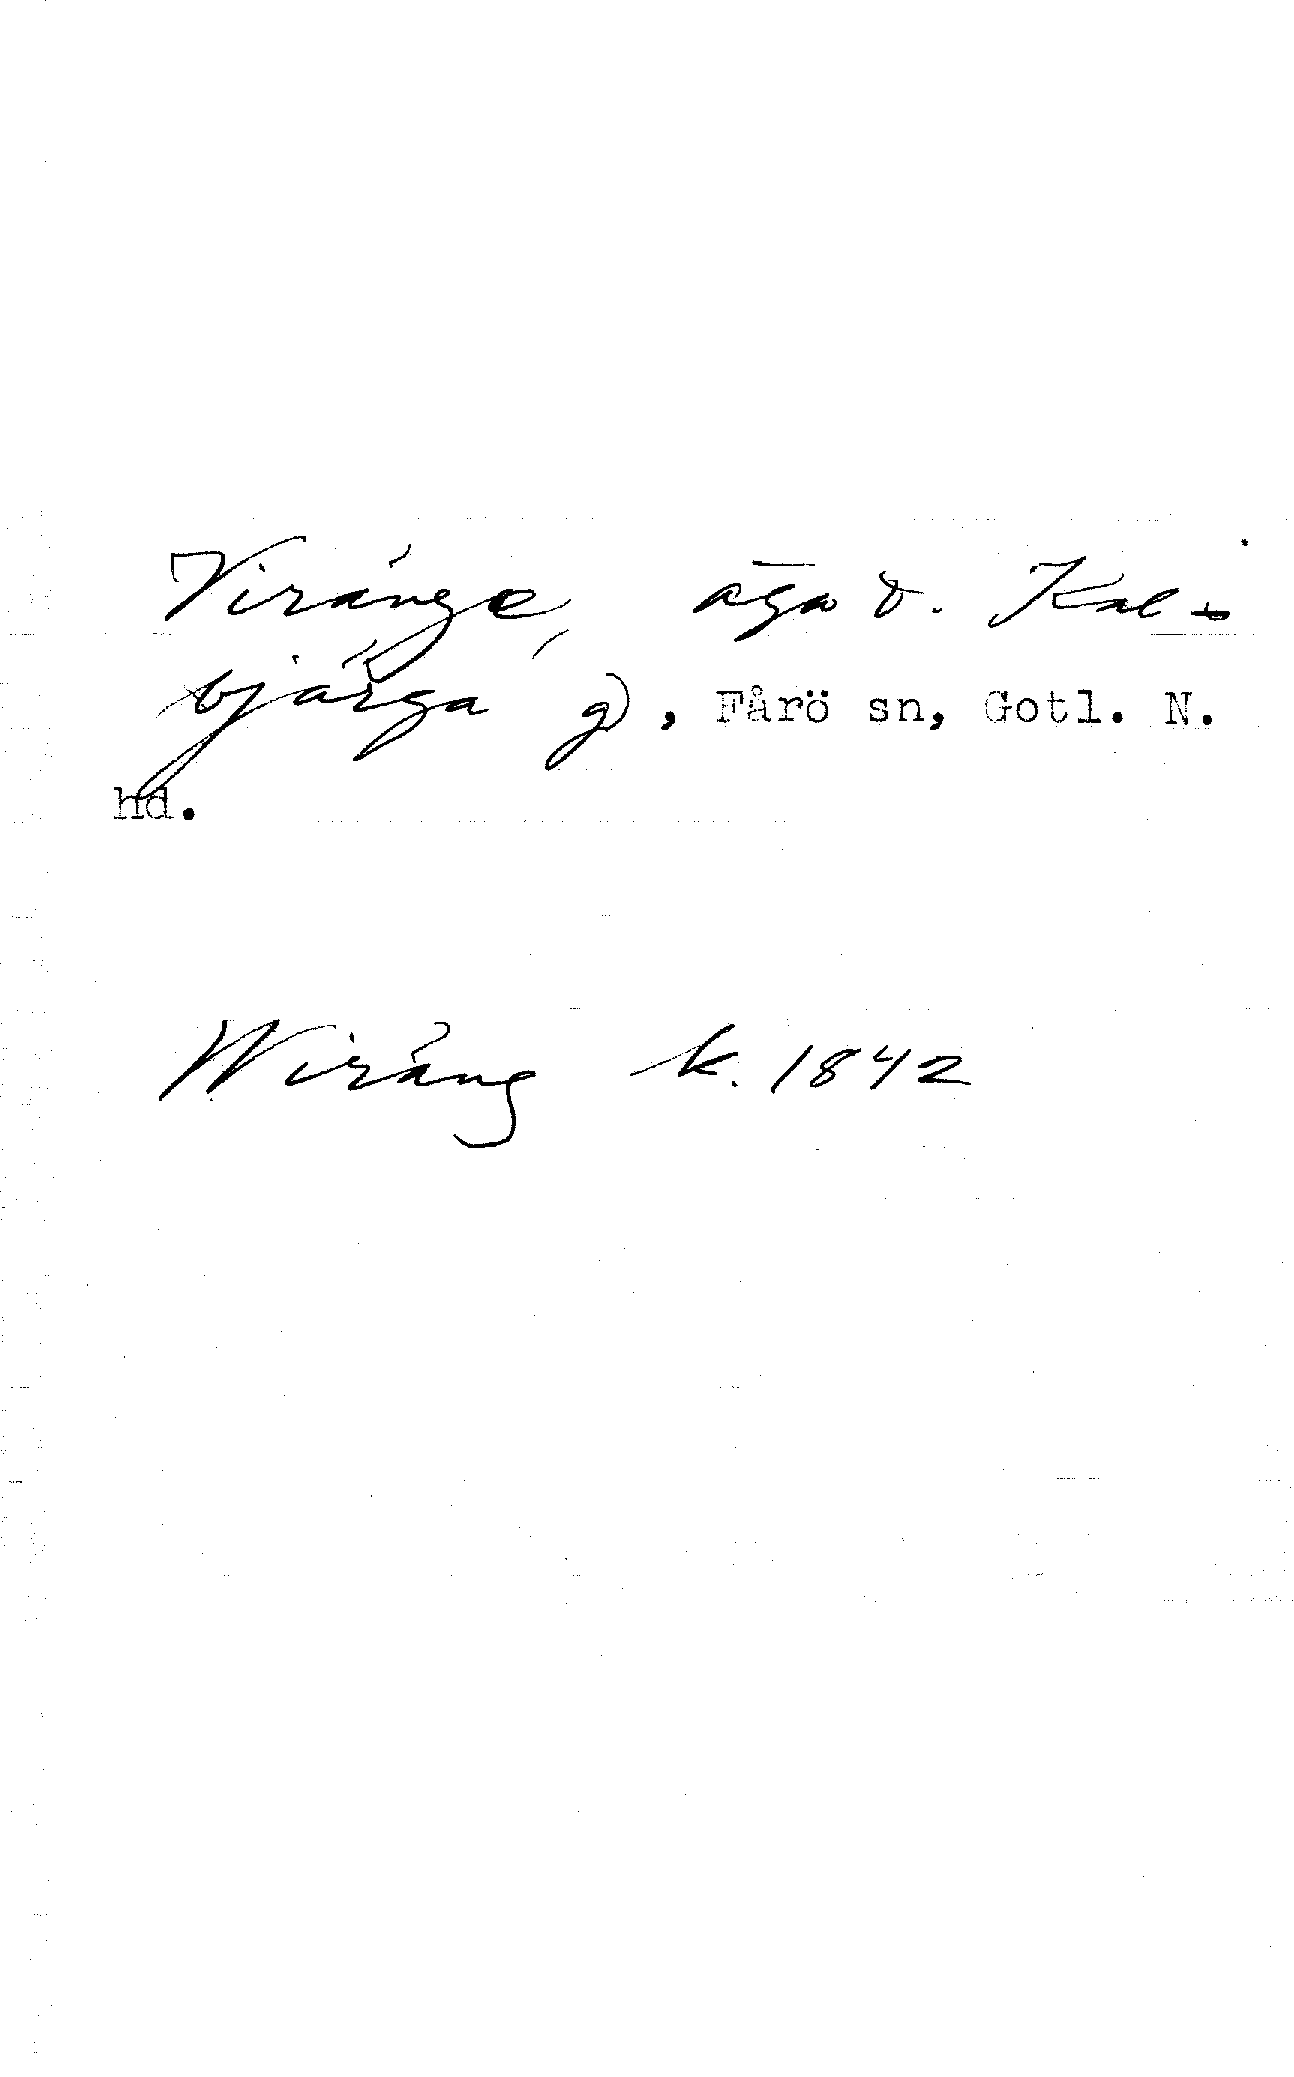 Viränge, äga v. Kal-
bjärga g), Fårö sn, Gotl. N.
hd.
Wiräng k. 1842